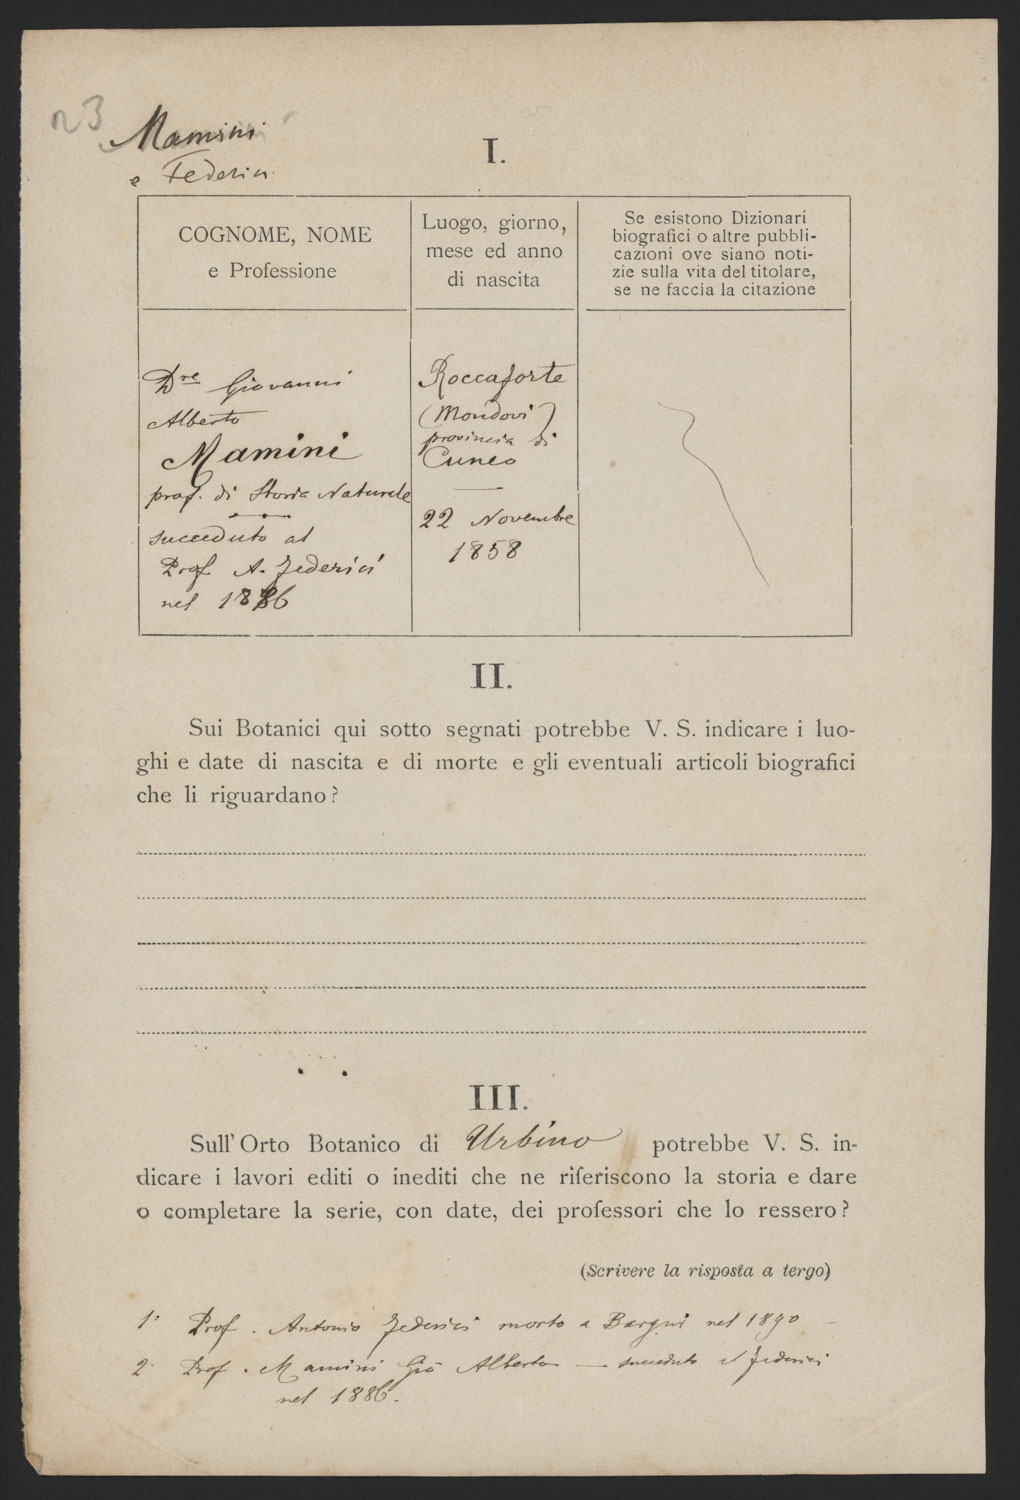 23
Mamini
e Federici
I.
COGNOME, NOME
e Professione
Luogo, giorno,
mese ed anno
di nascita
Se esistono Dizionari
biografici o altre pubbli-
cazioni ove siano noti-
zie sulla vita del titolare,
se ne faccia la citazione
Dre Giovanni
Alberto
Mamini
prof. di Storia Naturale
succeduto al
Prof A. Federici
nel 1886
Roccaforte
(Mondovi)
provincia di
Cuneo
22 Novembre
1858
II.
Sui Botanici qui sotto segnati potrebbe V. S. indicare i luo-
ghi e date di nascita e di morte e gli eventuali articoli biografici
che li riguardano?
III.
Sull' Orto Botanico di Urbino potrebbe V. S. in-
dicare i lavori editi o inediti che ne riferiscono la storia e dare
o completare la serie, con date, dei professori che lo ressero?
(Scrivere la risposta a tergo)
1° Prof. Antonio Federici morto a Bargni nel 1890 -
2 Prof. Mamini Gio Alberto — succeduto al Federici
nel 1886.